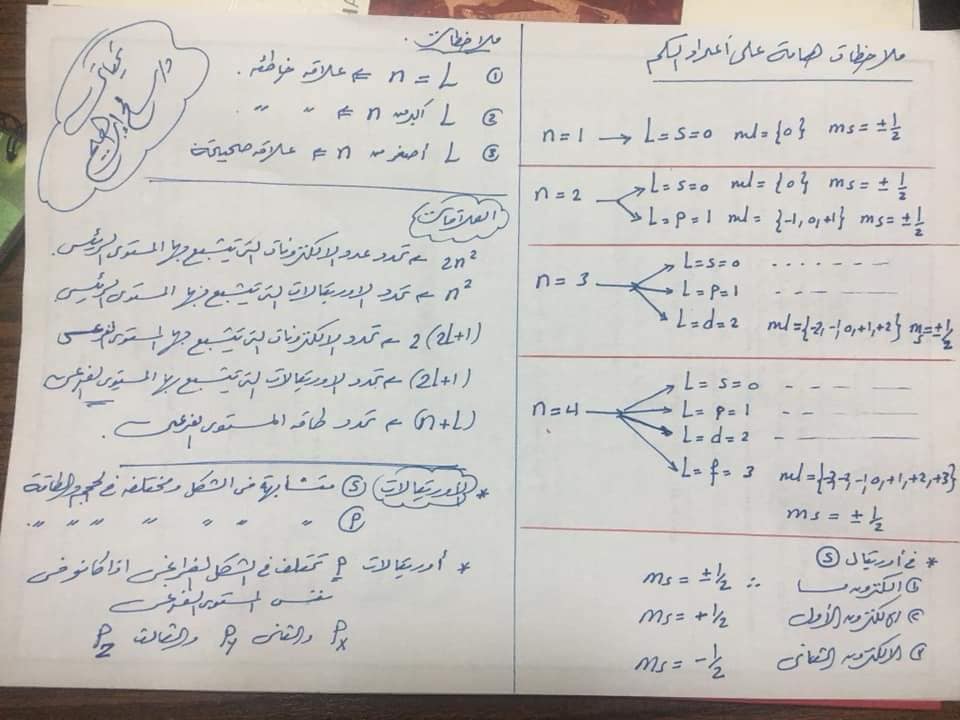 ملاحظات هامة على أعداد الكم
n = 1 → L = s = 0 ml = {0} ms = ± 1/2
n = 2 → L = s = 0 ml = {0} ms = ± 1/2
→ L = P = 1 ml = {-1, 0, +1} ms = ± 1/2
n = 3 → L = s = 0 - - - - - - -
→ L = P = 1 - - - - - -
→ L = d = 2 ml = {-2, -1, 0, +1, +2} ms = ± 1/2
n = 4 → L = s = 0 - - - - - -
→ L = P = 1 - - - - - -
→ L = d = 2 - - - - - -
→ L = f = 3 ml = {-3, -2, -1, 0, +1, +2, +3}
ms = ± 1/2
* في أوربيتال (S)
① إلكترون ما ∴ ms = ± 1/2
② الإلكترون الأول ms = + 1/2
③ الإلكترون الثاني ms = - 1/2
ملاحظات.
① n = L ⇐ علاقه خاطئه.
② L أكبر من n ⇐ 〃 〃
③ L أصغر من n ⇐ علاقه صحيحة
العلاقات
2n² ← تحدد عدد الإلكترونات التى يتشبع بها المستوى الرئيسى.
n² ← تحدد الاوربيتالات التى يتشبع بها المستوى الرئيسى
2(2L+1) ← تحدد الإلكترونات التى يتشبع بها المستوى الفرعى
(2L+1) ← تحدد الاوربيتالات التى يتشبع بها المستوى الفرعى
(n+L) ← تحدد طاقة المستوى الفرعى.
* الأوربيتالات (S) متشابهة فى الشكل ومختلفه فى الحجم والطاقة
(P) 〃 〃 〃 〃 〃 〃 〃.
* أوربيتالات P تختلف فى الشكل الفراغى اذا كانو فى
نفس المستوى الفرعى
Px والثانى Py والثالث Pz